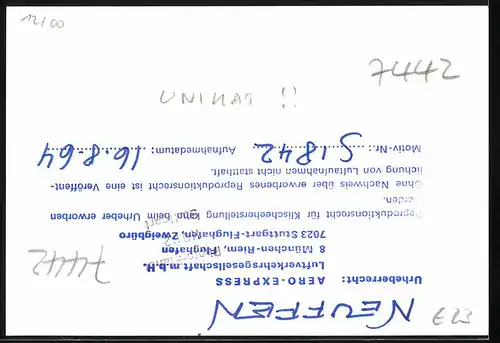 12/00
7442
UNIKAT !!
NEUFFEN
E23
Urheberrecht: AERO-EXPRESS
Luftverkehrsgesellschaft m.b.H.
8 München-Riem, Flughafen
7023 Stuttgart-Flughafen, Zweigbüro
Reproduktionsrecht für Klischeeherstellung kann beim Urheber erworben
werden.
Ohne Nachweis über erworbenes Reproduktionsrecht ist eine Veröffent-
lichung von Luftaufnahmen nicht statthaft.
Motiv-Nr.: S1842 Aufnahmedatum: 16.8.64
7442